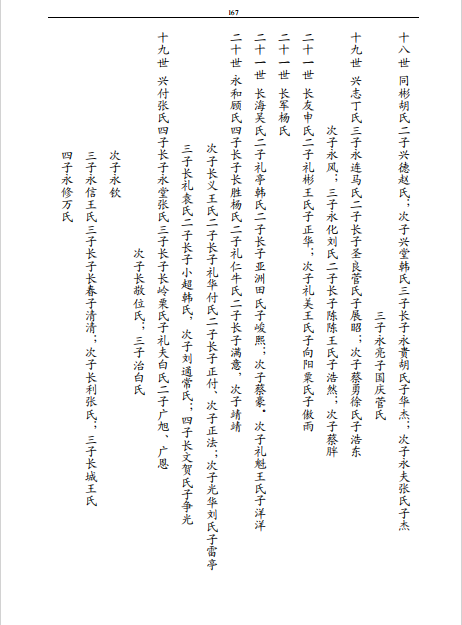 167
十八世 同彬胡氏二子兴德赵氏；次子兴堂韩氏三子长子永贵胡氏子华杰；次子永夫张氏子杰
三子永亮子国庆菅氏
十九世 兴志丁氏三子永连马氏二子长子圣良菅氏子展昭；次子蔡勇徐氏子浩东
次子永风；三子永化刘氏二子长子陈陈王氏子浩然；次子蔡胖
二十一世 长友申氏二子礼彬王氏子正华；次子礼美王氏子向阳粟氏子傲雨
二十一世 长军杨氏
二十一世 长海吴氏二子礼亭韩氏二子长子亚洲田氏子峻熙；次子蔡豪。次子礼魁王氏子洋洋
二十世 永和顾氏四子长子长胜杨氏二子礼仁牛氏二子长子满意，次子靖靖
次子长义王氏二子长子礼华付氏二子长子正付、次子正法；次子光华刘氏子雷亭
三子长礼袁氏二子长子小超韩氏，次子刘通常氏；四子长文贺氏子争光
十九世 兴付张氏四子长子永堂张氏三子长子长岭粟氏子礼夫白氏二子广旭、广恩
次子长敬位氏；三子治白氏
次子永钦
三子永信王氏三子长子长春子清清；次子长利张氏；三子长城王氏
四子永修万氏